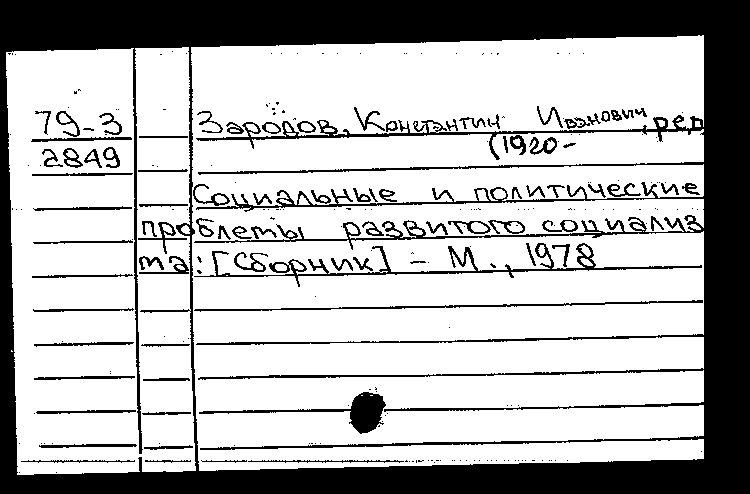 79-3 Зародов, Константин Иванович, ред
2849 (1920-
Социальные и политические
проблемы развитого социализ
ма: [Сборник] - М., 1978